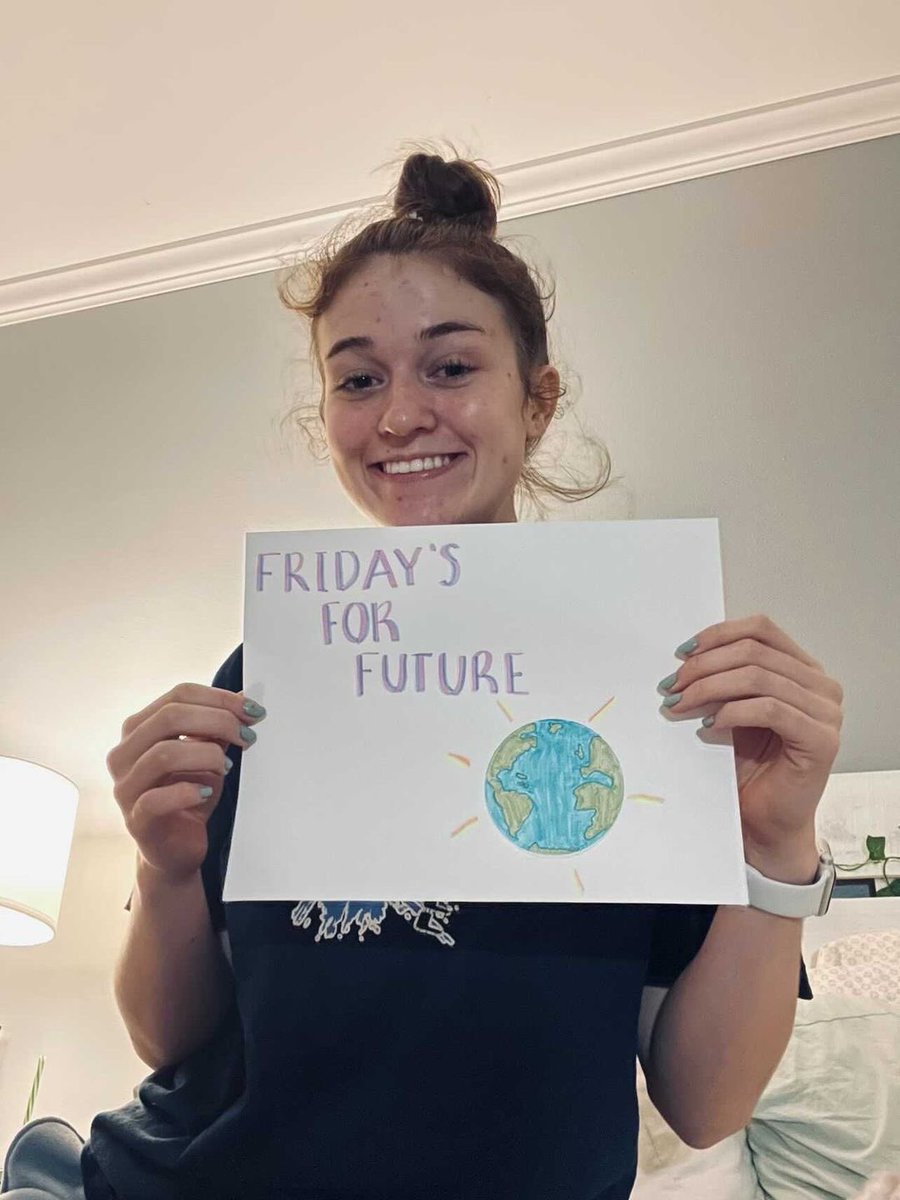 FRIDAY'S
FOR
FUTURE